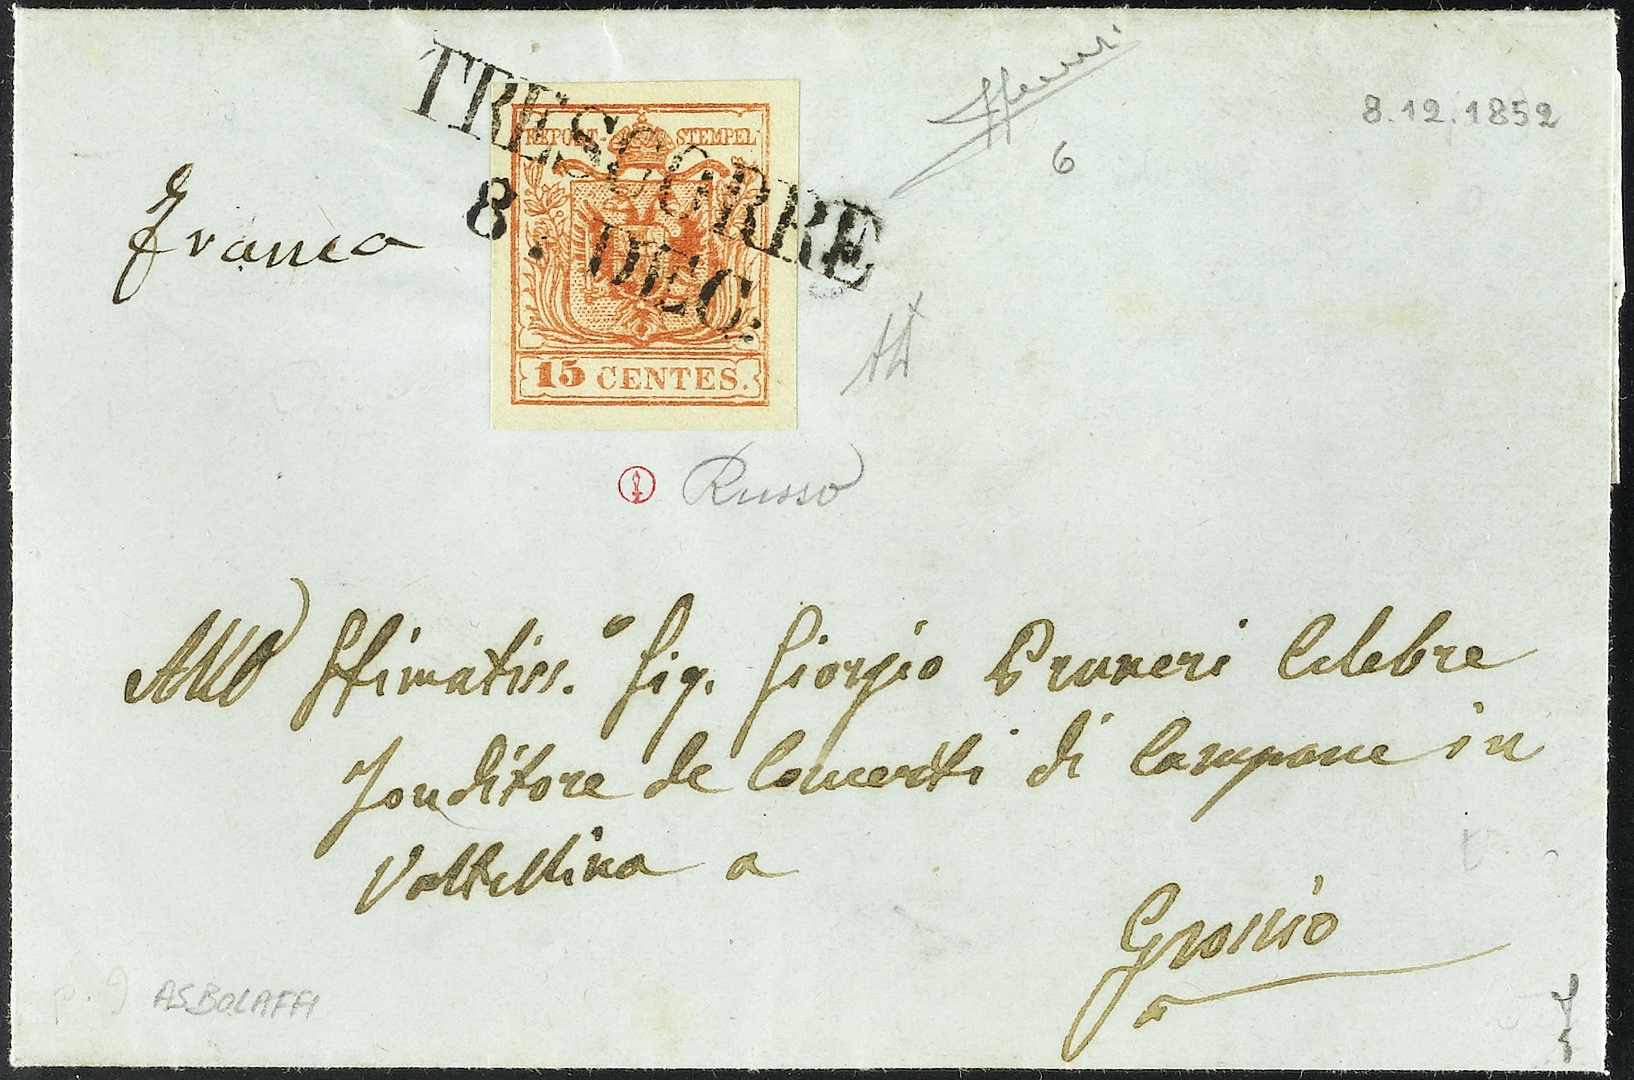 TRESCORRE
8. DEC:
REPOST.-STEMPEL
15 CENTES.
Franca
8.12.1852
6
Russo
Allo Stimatiss.º Sig. Giorgio Pruneri Celebre
Fonditore de Concerti di Campane in
Valtellina a
Grossio
ASBOLAFFI